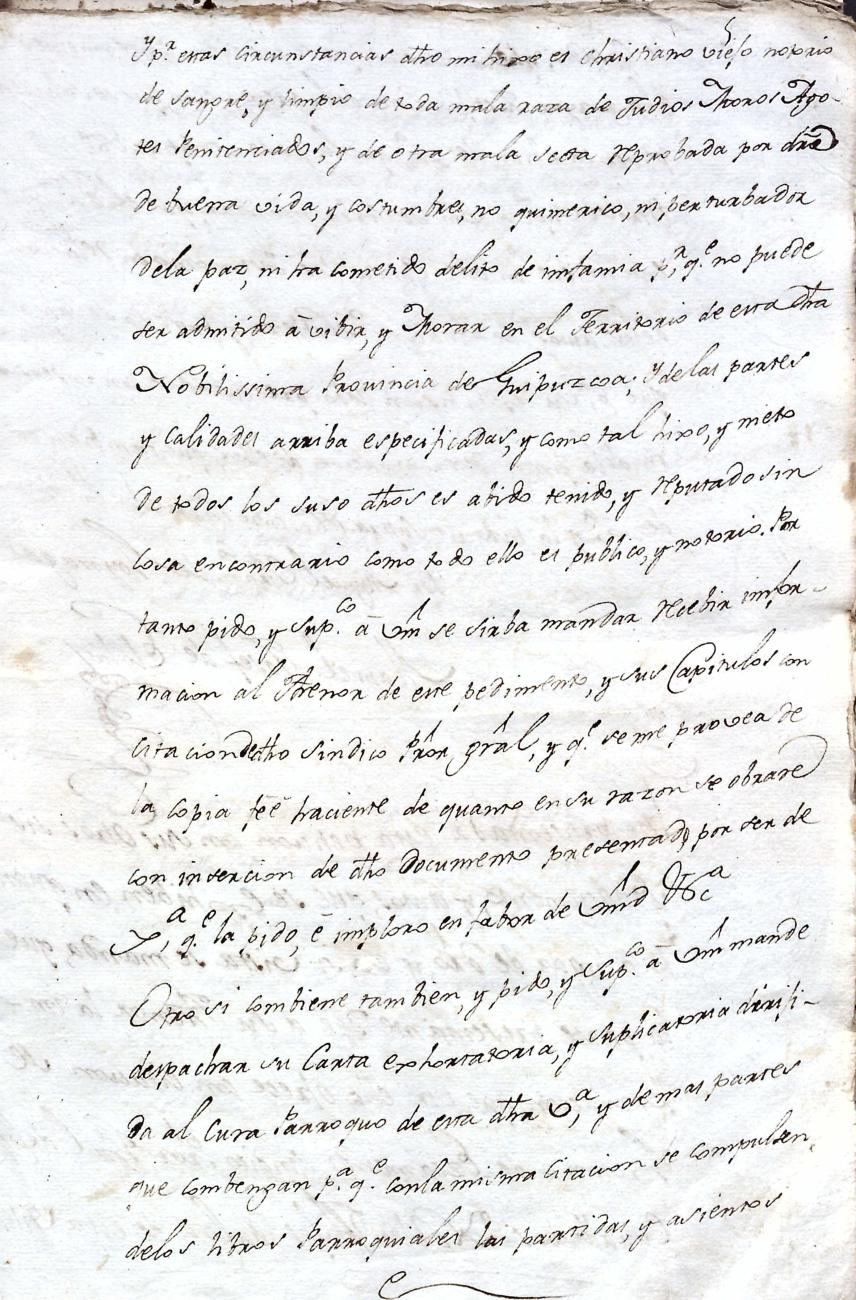 Y p.ª estas circunstancias dho mi hixo es christiano viejo notorio
de sangre, y limpio de toda mala raza de Judios Moros Ago-
tes Penitenciados, y de otra mala secta reprobada por dro
de buena vida, y costumbres, no quimerico, ni perturbador
dela paz, ni ha cometido delito de infamia p.ª q.e no puede
ser admitido â vibir, y Morar en el Territorio de esta dha
Nobilissima Provincia de Guipuzcoa; Y delas partes
y calidades arriba especificadas, y como tal hixo, y nieto
de todos los suso dhos es abido tenido, y reputado sin
cosa encontrario como todo ello es publico, y notorio. Por
tanto pido, y sup.co â Vm se sirba mandar recebir infor-
macion al thenor de este pedimento, y sus Capitulos con
citacion de dho sindico Pror gral, y q.e se me provea de
la copia feê haciente de quanto en su razon se obrare
con insercion de dho Documento presentado por ser de
J.ª q.e la pido, ê imploro en fabor de Vmd &c.ª
Otro si combiene tambien, y pido, y sup.co â Vm mande
despachar su Carta exhortatoria, y suplicatoria dirisi-
da al Cura Parroquo de esta dha V.ª y demas partes
que combengan p.ª q.e con la misma citacion se compulsen,
delos libros Parroquiales las partidas, y asientos